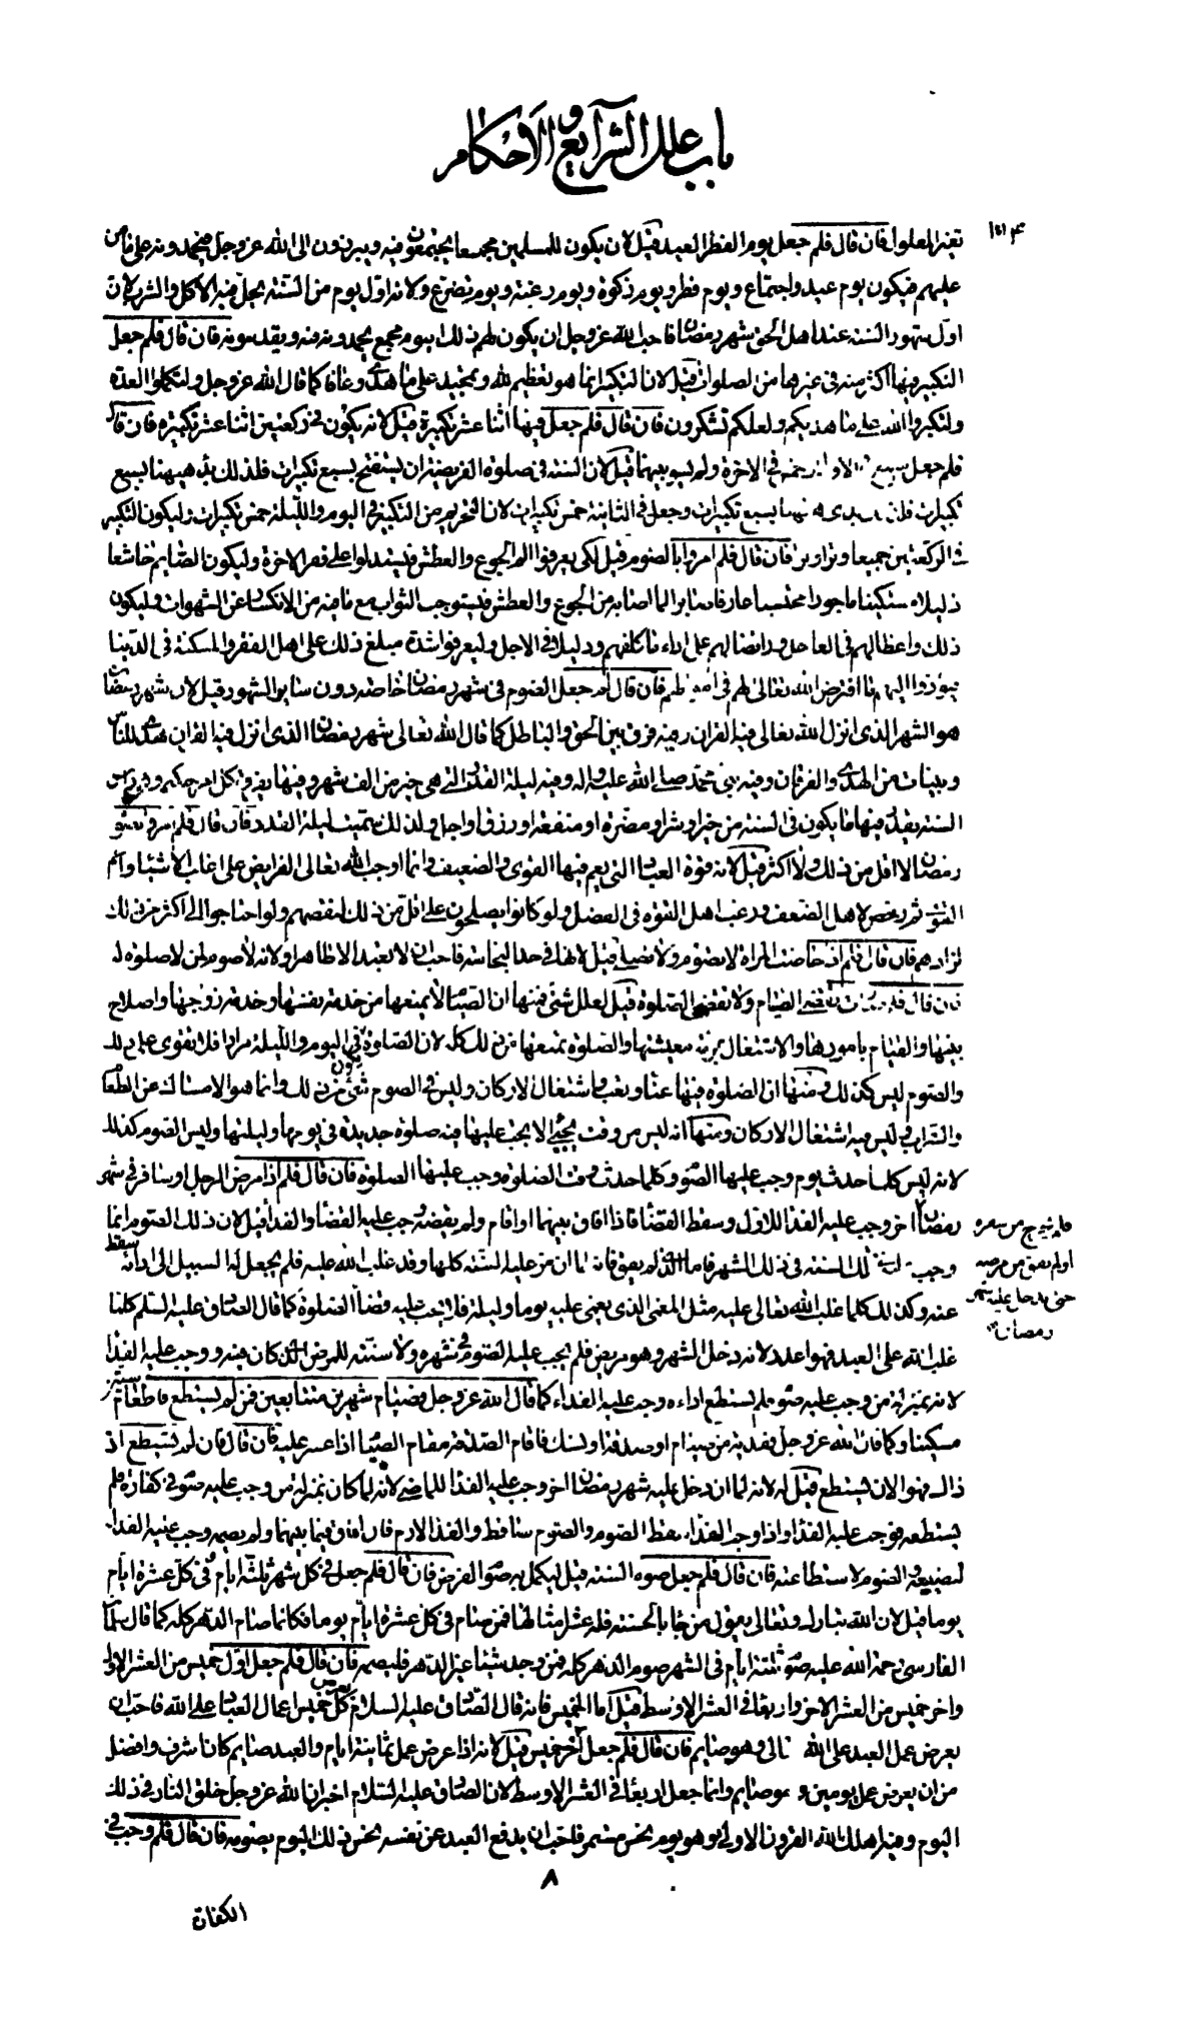 باب علل الشرايع و الاحكام
١٤٣
تغير المعلول فان قال فلم جعل يوم الفطر العيد قيل لان يكون للمسلمين مجمعا يجتمعون فيه ويبرزون الى الله عز وجل فيحمدونه على ما من
عليهم فيكون يوم عيد واجتماع ويوم فطر ويوم زكوة ويوم رغبة ويوم تضرع ولانه اول يوم من السنة يحل فيه الاكل والشرب لان
اول شهور السنة عند اهل الحق شهر رمضان فاحب الله عز وجل ان يكون لهم ذلك اليوم مجمع يحمدونه فيه ويقدسونه فان قال فلم جعل
التكبير فيها اكثر منه في غيرها من الصلوات قيل لان التكبير انما هو تعظيم لله وتمجيد على ما هدى وعافا كما قال الله عز وجل ولتكملوا العدة
ولتكبروا الله على ما هديكم ولعلكم تشكرون فان قال فلم جعل فيها اثنا عشر تكبيرة قيل لانه يكون في ركعتين اثنا عشر تكبيرة فان قال
فلم جعل سبع في الاولى وخمسة في الاخرة ولم يسو بينهما قيل لان السنة في صلوة الفريضة ان يستفتح بسبع تكبيرات فلذلك بدء هيهنا بسبع
تكبيرات وجعل في الثانية خمس تكبيرات لان التحريم من التكبير في اليوم والليلة خمس تكبيرات وليكون التكبير
في الركعتين جميعا وترا وترا فان قال فلم امروا بالصوم قيل لكي يعرفوا الم الجوع والعطش فيستدلوا على فقر الاخرة وليكون الصايم خاشعا
ذليلا مستكينا ماجورا محتسبا عارفا صابرا لما اصابه من الجوع والعطش فيستوجب الثواب مع ما فيه من الانكسار عن الشهوات وليكون
ذلك واعظا لهم في العاجل ورايضا لهم على اداء ما كلفهم ودليلا في الاجل وليعرفوا شدة مبلغ ذلك على اهل الفقر والمسكنة في الدنيا
فيؤدوا اليهم ما افترض الله تعالى لهم في اموالهم فان قال لم جعل الصوم في شهر رمضان خاصه دون ساير الشهور قيل لان شهر رمضان
هو الشهر الذي انزل الله تعالى فيه القران وفيه فرق بين الحق والباطل كما قال الله تعالى شهر رمضان الذي انزل فيه القران هدى للناس
وبينات من الهدى والفرقان وفيه نبئ محمد صلى الله عليه واله وفيه ليلة القدر التي هي خير من الف شهر وفيها يفرق كل امر حكيم وهو راس
السنة يقدر فيها ما يكون في السنة من خير او شر او مضرة او منفعة او رزق او اجل ولذلك سميت ليلة القدر فان قال فلم امروا بصوم
رمضان لا اقل من ذلك ولا اكثر قيل لانه قوة العباد التي يعم فيها القوي والضعيف وانما اوجب الله تعالى الفرايض على اغلب الاشياء واعم
القوى ثم رخص لاهل الضعف ورغب اهل القوة في الفضل ولو كانوا يصلحون على اقل من ذلك لنقصهم ولو احتاجوا الى اكثر من ذلك
لزادهم فان قال فلم اذا حاضت المراة لا تصوم ولا تصلي قيل لانها في حد النجاسه فاحب ان لا تعبد الا ظاهرا ولانه لا صوم لمن لا صلوة له
فان قال فلم صارت تقضي الصيام ولا تقضي الصلوة قيل لعلل شتى فمنها ان الصيام لا يمنعها من خدمة نفسها وخدمة زوجها واصلاح
بيتها والقيام بامورها والاشتغال بمرمة معيشتها والصلوة تمنعها من ذلك كله لان الصلوة تكون في اليوم والليلة مرارا فلا تقوى على ذلك
والصوم ليس كذلك ومنها ان الصلوة فيها عناء وتعب واشتغال الاركان وليس في الصوم شئ من ذلك وانما هو الامساك عن الطعام
والشراب وليس فيه اشتغال الاركان ومنها انه ليس من وقت يجئ الا يجب عليها فيه صلوة جديدة في يومها وليلتها وليس الصوم كذلك
لانه ليس كلما حدث يوم وجب عليها الصوم وكلما حدث وقت الصلوة وجب عليها الصلوة فان قال فلم اذا مرض الرجل او سافر في شهر
رمضان اخر وجب عليه الفداء للاول وسقط القضاء فاذا افاق بينهما او اقام ولم يقضه وجب عليه القضاء والفداء قيل لان ذلك الصوم انما
وجب عليه في تلك السنة في ذلك الشهر فاما الذي لم يفق فانه لما ان مر عليه السنة كلها وقد غلب الله عليه فلم يجعل له السبيل الى ادائه سقط
عنه وكذلك كلما غلب الله تعالى عليه مثل المغمى الذي يغمى عليه يوما وليلة فلا يجب عليه قضاء الصلوة كما قال الصادق عليه السلم كلما
غلب الله على العبد فهو اعذر له لانه دخل الشهر وهو مريض فلم يجب عليه الصوم في شهره ولا سنته للمرض الذي كان فيه ووجب عليه الفداء
لانه بمنزلة من وجب عليه صوم فلم يستطع اداءه وجب عليه الفداء كما قال الله عز وجل فصيام شهرين متتابعين فمن لم يستطع فاطعام ستين
مسكينا وكما قال الله عز وجل ففدية من صيام او صدقة او نسك فاقام الصدقة مقام الصيام اذا عسر عليه فان قال فان لم يستطع اذ
ذاك فهو الان يستطيع قيل له لانه لما ان دخل عليه شهر رمضان اخر وجب عليه الفداء للماضي لانه لما كان بمنزلة من وجب عليه صوم في كفارة فلم
يستطعه فوجب عليه الفداء واذا وجب الفداء سقط الصوم والصوم ساقط والفداء لازم فان افاق فيما بينهما ولم يصمه وجب عليه الفداء
لتضييعه والصوم لاستطاعته فان قال فلم جعل صوم السنة قيل ليكمل به صوم الفرض فان قال فلم جعل في كل شهر ثلثة ايام في كل عشرة ايام
يوما قيل لان الله تبارك وتعالى يقول من جاء بالحسنة فله عشر امثالها فمن صام في كل عشرة ايام يوما فكانما صام الدهر كله كما قال سلمان
الفارسي رحمة الله عليه صوم ثلثة ايام في الشهر صوم الدهر كله فمن وجد شيئا غير الدهر فليصمه فان قال فلم جعل اول خميس من العشر الاول
واخر خميس من العشر الاخر واربعاء في العشر الاوسط قيل اما الخميس فانه قال الصادق عليه السلام يعرض كل خميس اعمال العباد على الله فاحب ان
يعرض عمل العبد على الله تعالى وهو صايم فان قال فلم جعل اخر خميس قيل لانه اذا عرض عمل ثمانية ايام والعبد صايم كان اشرف وافضل
من ان يعرض عمل يومين وهو صايم وانما جعل اربعاء في العشر الاوسط لان الصادق عليه السلام اخبر ان الله عز وجل خلق النار في ذلك
اليوم وفيه اهلك الله القرون الاولى وهو يوم نحس مستمر فاحب ان يدفع العبد عن نفسه نحس ذلك اليوم بصومه فان قال فلم وجب في
فلم يخرج من سفره
او لم يفق من مرضه
حتى يدخل عليه شهر
رمضان
٨
الكفارة